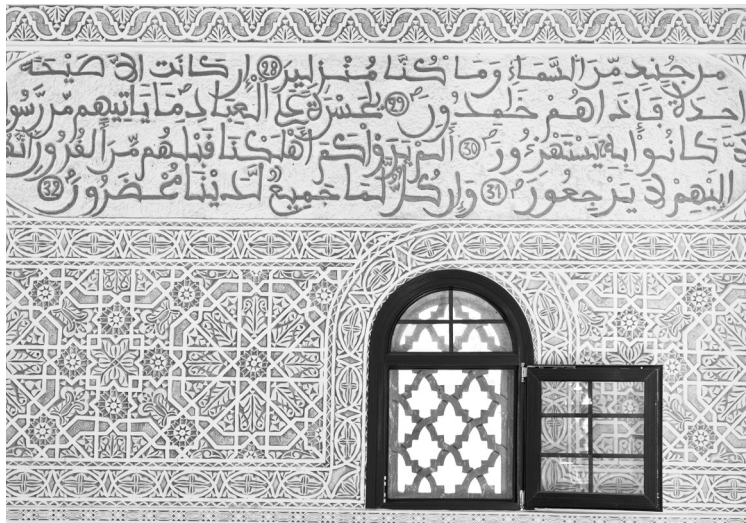 من جند من السماء وما كنا منزلين 28 إن كانت إلا صيحة
واحدة فإذا هم خامدون 29 يا حسرة على العباد ما ياتيهم من رسو
ل الا كانوا به يستهزءون 30 ألم يروا كم أهلكنا قبلهم من القرون أنهم
إليهم لا يرجعون 31 وإن كل لما جميع لدينا محضرون 32